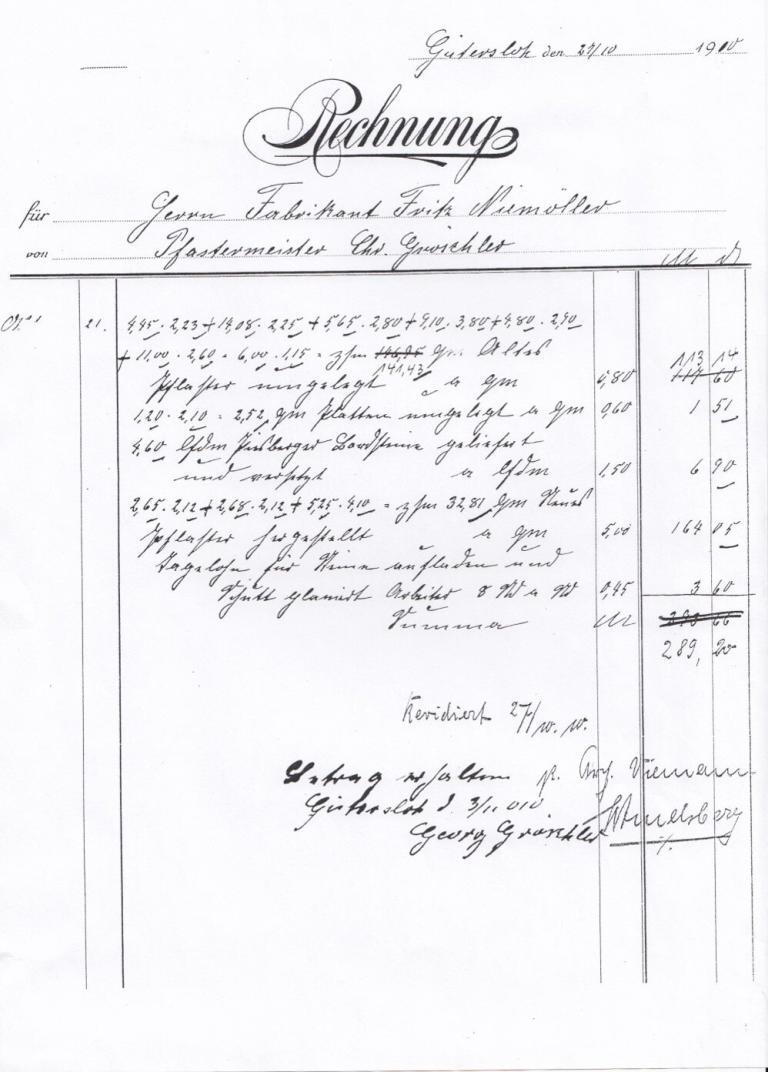 Gütersloh den 27/10 1910
Rechnung
für Herrn Fabrikant Fritz Niemöller
von Pflastermeister Chr. Gröschler
M d
21. 4,45 · 2,23 + 14,08 · 2,25 + 5,65 · 2,80 + 9,10 · 3,80 + 4,80 · 2,90
+ 11,00 · 2,60 - 6,00 · 1,15 = zsm 146,95 qm Altes
141,43
113 14
Pflaster umgelegt a qm 0,80 117 60
1,20 · 2,10 = 2,52 qm Platten umgelegt a qm 0,60 1 51
4,60 lfdm Piesberger Bordsteine geliefert
und versetzt a lfdm 1,50 6 90
2,65 · 2,12 + 2,68 · 2,12 + 5,25 · 4,10 = zsm 32,81 qm Neues
Pflaster hergestellt a qm 5,00 164 05
Tagelohn für Steine aufladen und
Schutt planiert Arbeiter 8 Std a Std 0,45 3 60
Summa M
289, 20
Revidiert 27/10. 10.
Betrag erhalten
Gütersloh d. 3/11 010
Georg Gröschler